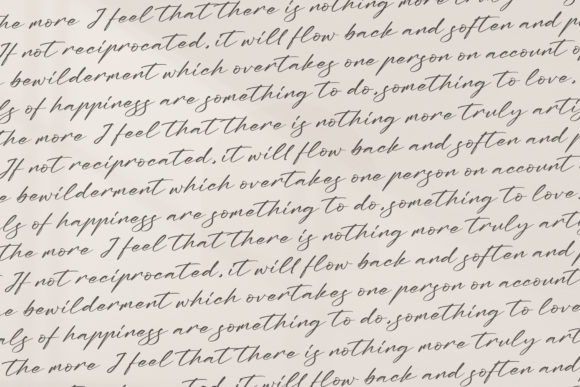 the more I feel that there is nothing more truly
If not reciprocated, it will flow back and soften and
bewilderment which overtakes one person on account
of happiness are something to do, something to love.
the more I feel that there is nothing more truly
If not reciprocated, it will flow back and soften and
bewilderment which overtakes one person on account
of happiness are something to do, something to love.
the more I feel that there is nothing more truly
If not reciprocated, it will flow back and soften and
bewilderment which overtakes one person on account
of happiness are something to do, something to love
the more I feel that there is nothing more truly
it will flow back and soften